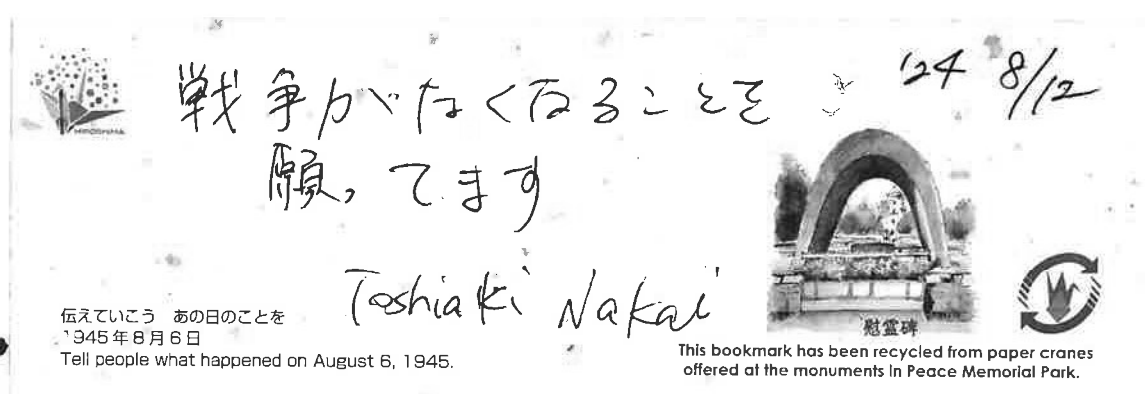 '24 8/12
戦争がなくなることを
願ってます
Toshiaki Nakai
HIROSHIMA
伝えていこう あの日のことを
1945年8月6日
Tell people what happened on August 6, 1945.
慰霊碑
This bookmark has been recycled from paper cranes
offered at the monuments in Peace Memorial Park.